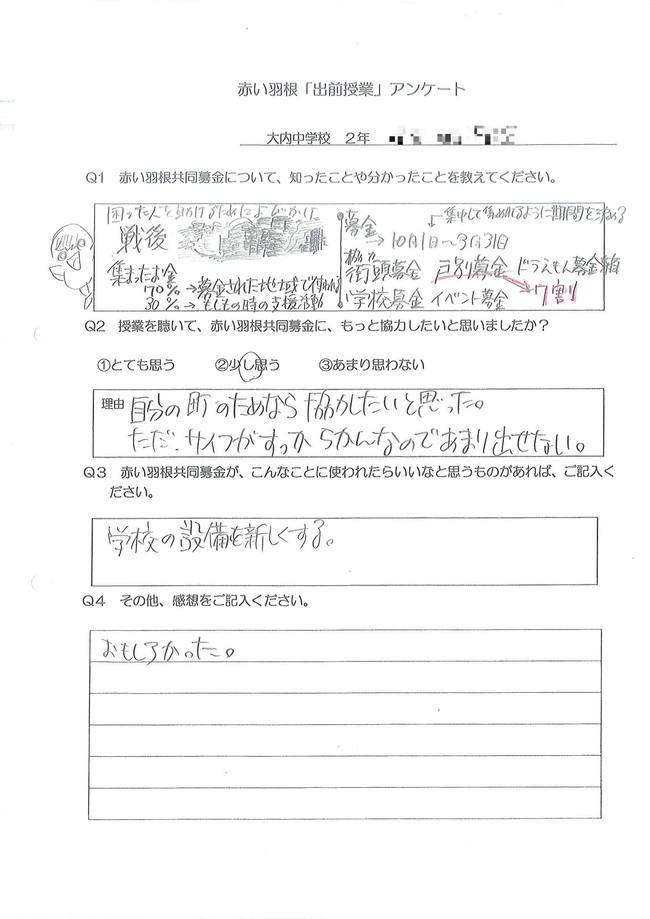 赤い羽根「出前授業」アンケート
大内中学校 2年
Q1 赤い羽根共同募金について、知ったことや分かったことを教えてください。
困った人を助けるために
戦後
集まったお金
70%→募金された地域で
30%→もしもの時の支援活動
募金
集中して集められるように期間を決める
→10月1日〜3月31日
協力
街頭募金 戸別募金 ドラえもん募金箱
学校募金 イベント募金 →7割り
Q2 授業を聴いて、赤い羽根共同募金に、もっと協力したいと思いましたか?
①とても思う ②少し思う ③あまり思わない
理由 自分の町のためなら協力したいと思った。
ただ、サイフがすっからかんなのであまり出せない。
Q3 赤い羽根共同募金が、こんなことに使われたらいいなと思うものがあれば、ご記入く
ださい。
学校の設備を新しくする。
Q4 その他、感想をご記入ください。
おもしろかった。